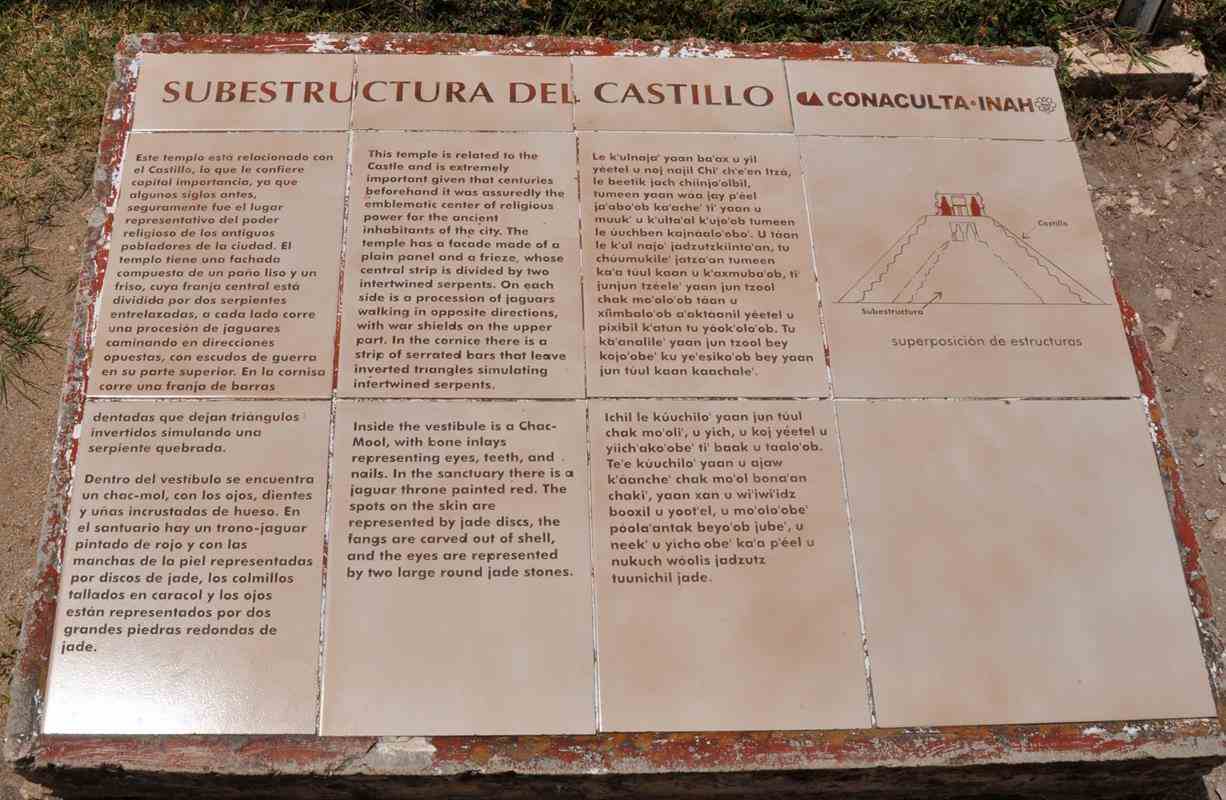 SUBESTRUCTURA DEL CASTILLO
CONACULTA·INAH
Este templo está relacionado con
el Castillo, lo que le confiere
capital importancia, ya que
algunos siglos antes,
seguramente fue el lugar
representativo del poder
religioso de los antiguos
pobladores de la ciudad. El
templo tiene una fachada
compuesta de un paño liso y un
friso, cuya franja central está
dividida por dos serpientes
entrelazadas, a cada lado corre
una procesión de jaguares
caminando en direcciones
opuestas, con escudos de guerra
en su parte superior. En la cornisa
corre una franja de barras
dentadas que dejan triángulos
invertidos simulando una
serpiente quebrada.
Dentro del vestíbulo se encuentra
un chac-mol, con los ojos, dientes
y uñas incrustadas de hueso. En
el santuario hay un trono-jaguar
pintado de rojo y con las
manchas de la piel representadas
por discos de jade, los colmillos
tallados en caracol y los ojos
están representados por dos
grandes piedras redondas de
jade.
This temple is related to the
Castle and is extremely
important given that centuries
beforehand it was assuredly the
emblematic center of religious
power for the ancient
inhabitants of the city. The
temple has a facade made of a
plain panel and a frieze, whose
central strip is divided by two
intertwined serpents. On each
side is a procession of jaguars
walking in opposite directions,
with war shields on the upper
part. In the cornice there is a
strip of serrated bars that leave
inverted triangles simulating
intertwined serpents.
Inside the vestibule is a Chac-
Mool, with bone inlays
representing eyes, teeth, and
nails. In the sanctuary there is a
jaguar throne painted red. The
spots on the skin are
represented by jade discs, the
fangs are carved out of shell,
and the eyes are represented
by two large round jade stones.
Le k'ulnaja' yaan ba'ax u yil
yéetel u noj najil Chi' ch'e'en Itzá,
le beetik jach chiinjo'olbil,
tumeen yaan waa jay p'éel
ja'abo'ob ka'ache' ti' yaan u
muuk' u k'ulta'al k'ujo'ob tumeen
le úuchben kajnáalo'obo'. U táan
le k'ul najo' jadzutzkíinta'an, tu
chúumukile' jatza'an tumeen
ka'a túul kaan u k'axmuba'ob, ti'
junjun tzéele' yaan jun tzool
chak mo'olo'ob táan u
xíimbalo'ob a'aktáanil yéetel u
pixibil k'atun tu yóok'olo'ob. Tu
ka'analile' yaan jun tzool bey
kojo'obe' ku ye'esiko'ob bey yaan
jun túul kaan kaachale'.
Ichil le kúuchilo' yaan jun túul
chak mo'oli', u yich, u koj yéetel u
yíich'ako'obe' ti' baak u taalo'ob.
Te'e kúuchilo' yaan u ajaw
k'áanche' chak mo'ol bona'an
chaki', yaan xan u wi'iwi'idz
booxil u yoot'el, u mo'olo'obe'
póola'antak beyo'ob jube', u
neek' u yicho'obe' ka'a p'éel u
nukuch wóolis jadzutz
tuunichil jade.
Castillo
Subestructura
superposición de estructuras